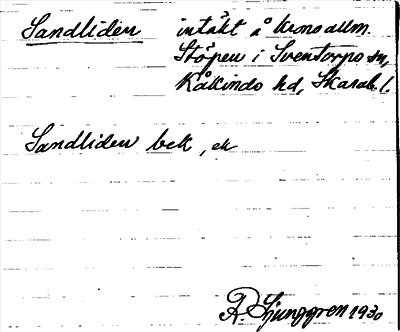 Sandliden intäkt å Kronoallm.
Stöpen i Sventorps sn,
Kåkinds hd, Skarab. l.
Sandliden bek, en
R. Ljunggren 1930